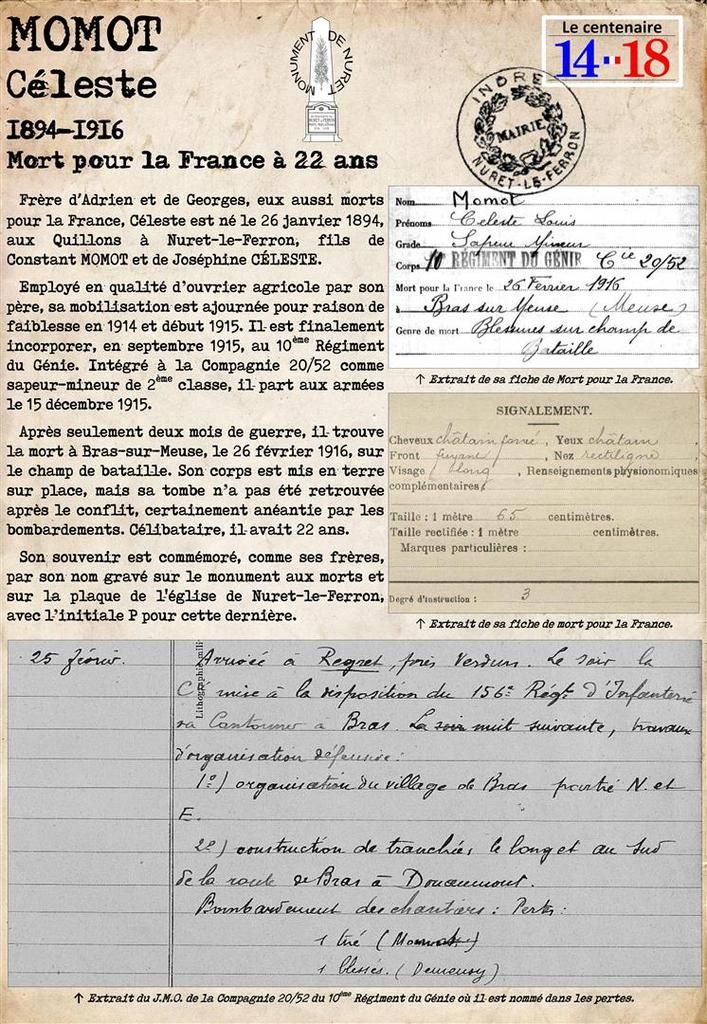 MOMOT
Céleste
1894-1916
Mort pour la France à 22 ans
MONUMENT DE NURET
Le centenaire
14··18
INDRE
MAIRIE
NURET-LE-FERRON
Frère d'Adrien et de Georges, eux aussi morts
pour la France, Céleste est né le 26 janvier 1894,
aux Quillons à Nuret-le-Ferron, fils de
Constant MOMOT et de Joséphine CÉLESTE.
Employé en qualité d'ouvrier agricole par son
père, sa mobilisation est ajournée pour raison de
faiblesse en 1914 et début 1915. Il est finalement
incorporer, en septembre 1915, au 10ème Régiment
du Génie. Intégré à la Compagnie 20/52 comme
sapeur-mineur de 2ème classe, il part aux armées
le 15 décembre 1915.
Après seulement deux mois de guerre, il trouve
la mort à Bras-sur-Meuse, le 26 février 1916, sur
le champ de bataille. Son corps est mis en terre
sur place, mais sa tombe n'a pas été retrouvée
après le conflit, certainement anéantie par les
bombardements. Célibataire, il avait 22 ans.
Son souvenir est commémoré, comme ses frères,
par son nom gravé sur le monument aux morts et
sur la plaque de l'église de Nuret-le-Ferron,
avec l'initiale P pour cette dernière.
Nom Momot
Prénoms Celeste Louis
Grade Sapeur Mineur
Corps 10 RÉGIMENT DU GÉNIE Cie 20/52
Mort pour la France le 26 Fevrier 1916
à Bras sur Meuse (Meuse)
Genre de mort Blessures sur champ de
Bataille
↑ Extrait de sa fiche de Mort pour la France.
SIGNALEMENT.
Cheveux châtain foncé, Yeux châtain,
Front fuyant, Nez rectiligne,
Visage long, Renseignements physionomiques
complémentaires:
Taille : 1 mètre 65 centimètres.
Taille rectifiée : 1 mètre centimètres.
Marques particulières :
Degré d'instruction : 3
↑ Extrait de sa fiche de mort pour la France.
25 février.
Arrivée à Regret, près Verdun. Le soir la
Cie mise à la disposition du 156e Régt d'Infanterie
va Cantonner à Bras. La soir nuit suivante, travaux
d'organisation défensive:
1º) organisation du village de Bras partie N. et
E.
2º) construction de tranchées le long et au Sud
de la route de Bras à Douaumont.
Bombardement des chantiers : Pertes :
1 tué (Momot)
1 blessés. (Demeusy)
↑ Extrait du J.M.O. de la Compagnie 20/52 du 10ème Régiment du Génie où il est nommé dans les pertes.